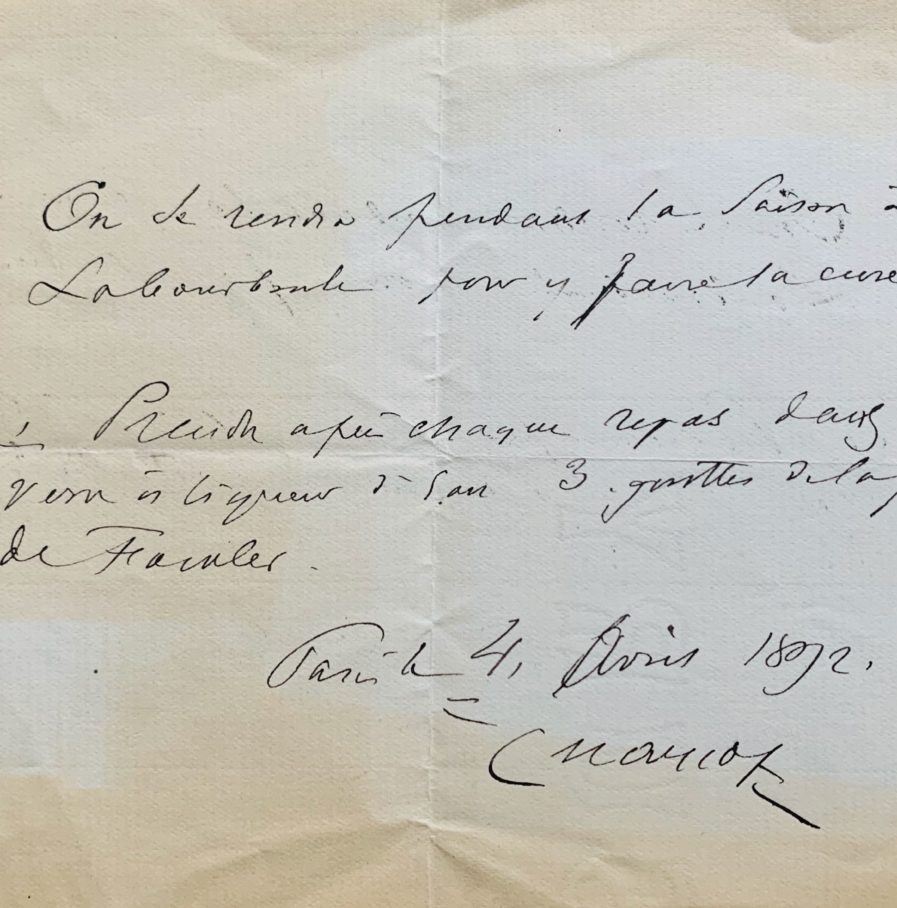 On se rendra pendant la saison à
Labourboule pour y faire la cure
Prendre après chaque repas dans
verre à liqueur d'eau 3 gouttes de la
de Fowler.
Paris le 4 Avril 1892.
Charcot